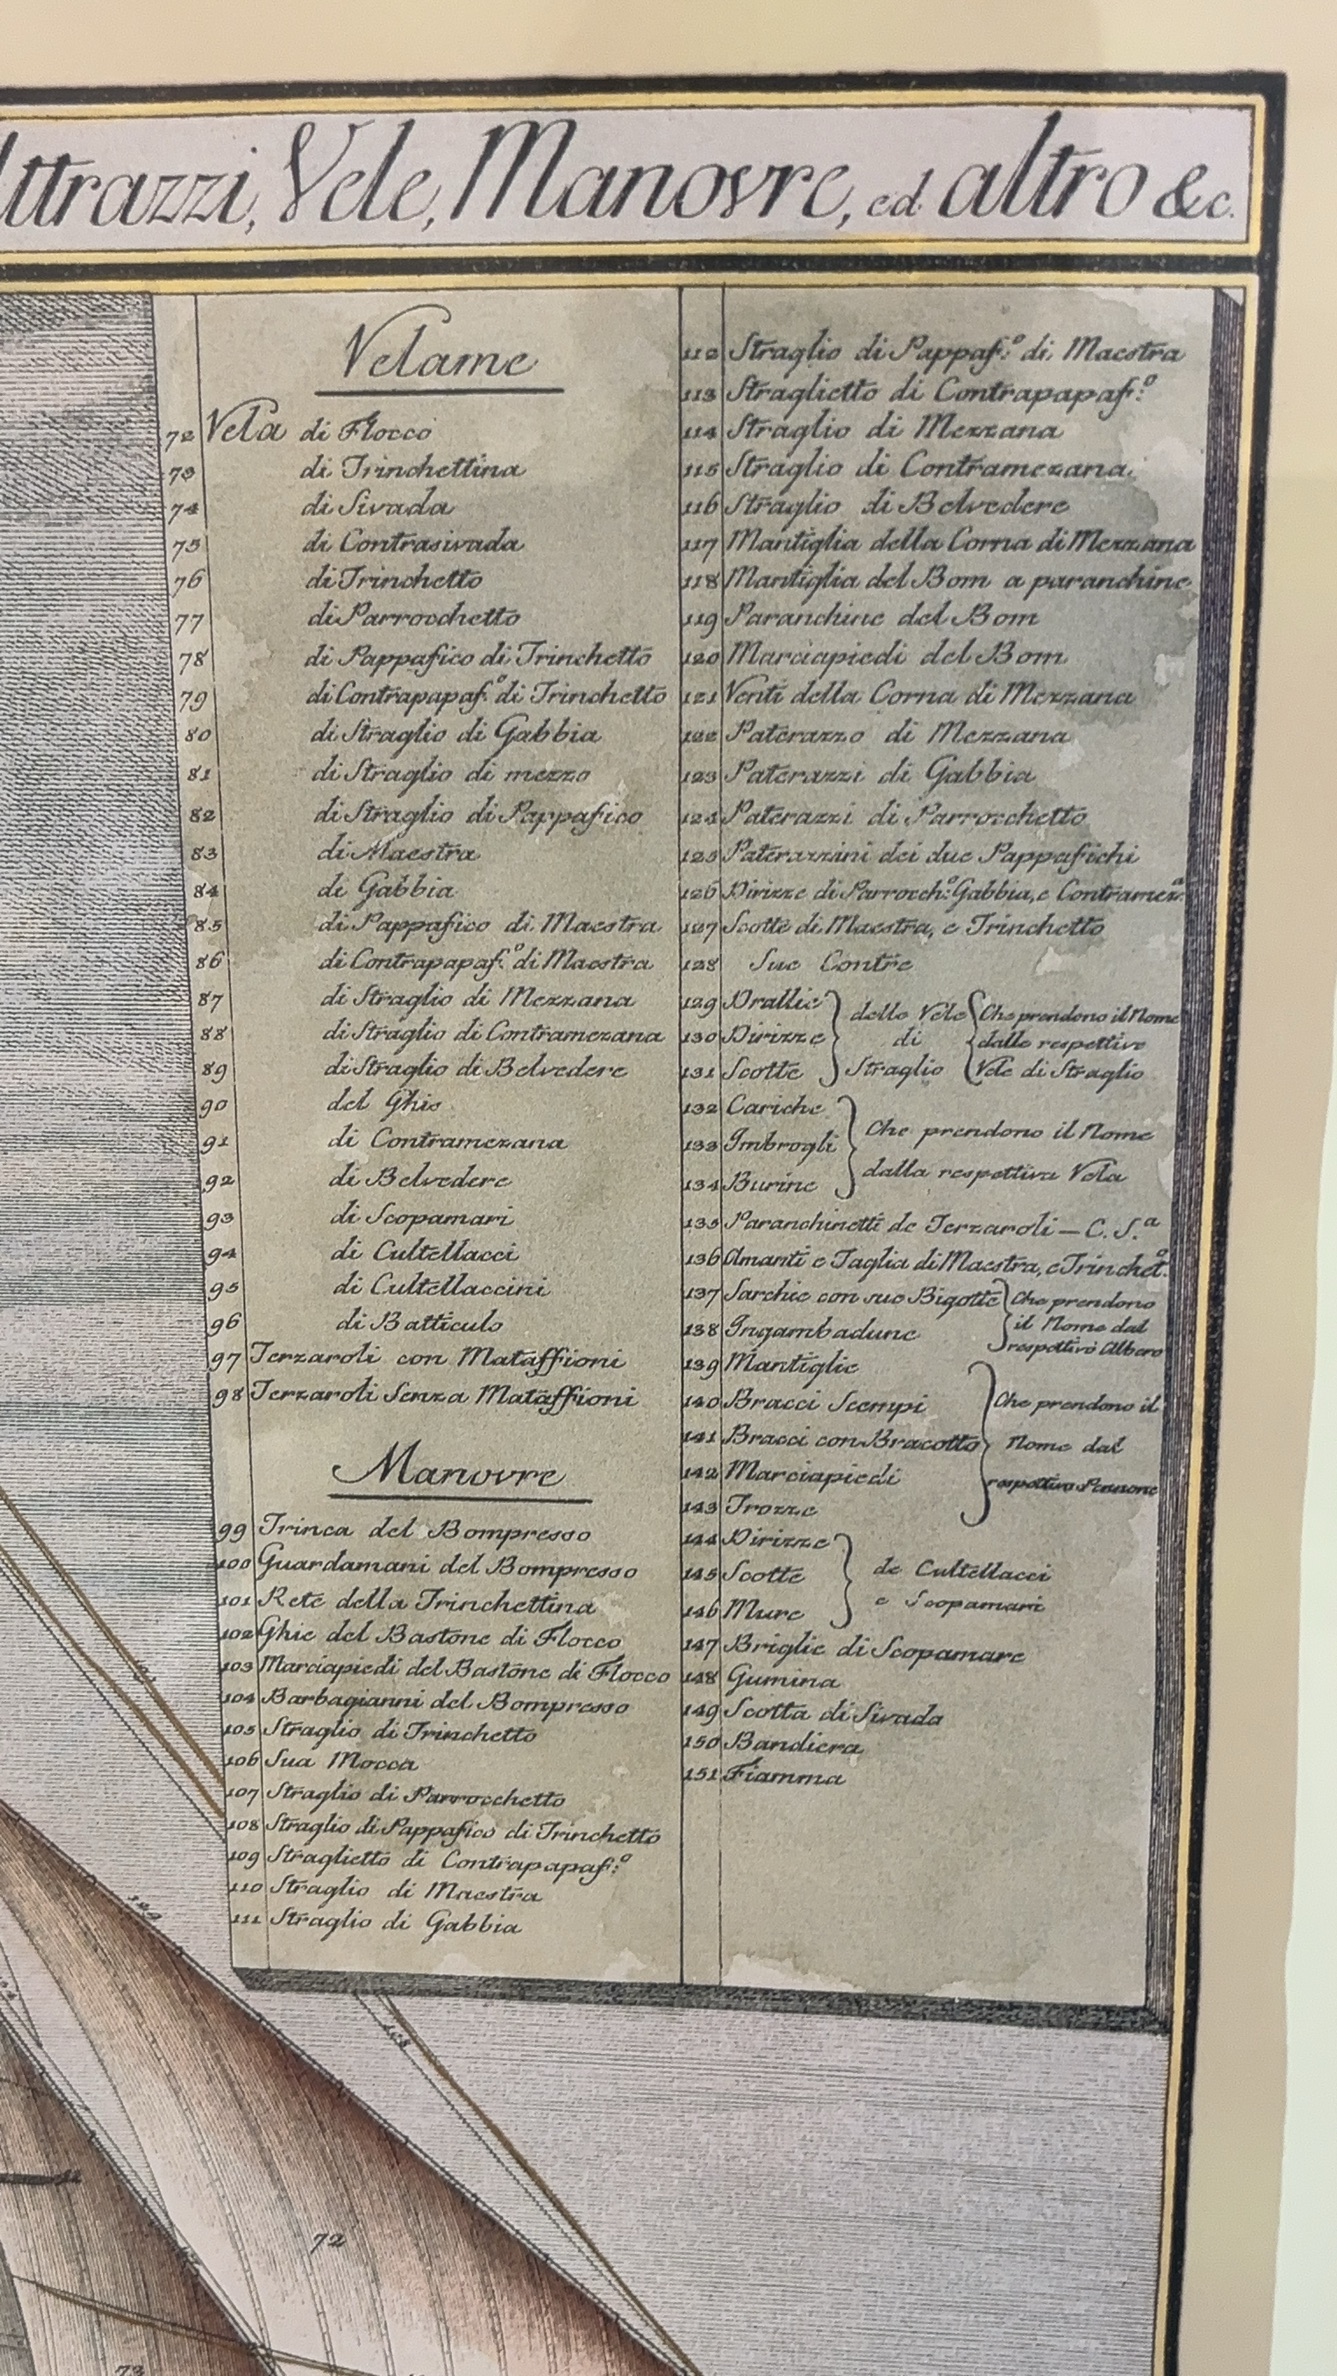 ttrazzi, Vele, Manovre, ed altro &c.
Velame
72 Vela di Flocco
73 di Trinchettina
74 di Sivada
75 di Contrasivada
76 di Trinchetto
77 di Parrocchetto
78 di Pappafico di Trinchetto
79 di Contrapapaf.º di Trinchetto
80 di Straglio di Gabbia
81 di Straglio di mezzo
82 di Straglio di Pappafico
83 di Maestra
84 di Gabbia
85 di Pappafico di Maestra
86 di Contrapapaf.º di Maestra
87 di Straglio di Mezzana
88 di Straglio di Contramezana
89 di Straglio di Belvedere
90 del Ghis
91 di Contramezana
92 di Belvedere
93 di Scopamari
94 di Cultellacci
95 di Cultellaccini
96 di Batticulo
97 Terzaroli con Mataffioni
98 Terzaroli Senza Mataffioni
Manovre
99 Trinca del Bompresso
100 Guardamani del Bompresso
101 Rete della Trinchettina
102 Ghie del Bastone di Flocco
103 Marciapiedi del Bastone di Flocco
104 Barbagianni del Bompresso
105 Straglio di Trinchetto
106 Sua Mocca
107 Straglio di Parrocchetto
108 Straglio di Pappafico di Trinchetto
109 Straglietto di Contrapapaf.º
110 Straglio di Maestra
111 Straglio di Gabbia
112 Straglio di Pappaf.º di Maestra
113 Straglietto di Contrapapaf.º
114 Straglio di Mezzana
115 Straglio di Contramezana
116 Straglio di Belvedere
117 Mantiglia della Corna di Mezzana
118 Mantiglia del Bom a paranchine
119 Paranchine del Bom
120 Marciapiedi del Bom
121 Venti della Corna di Mezzana
122 Paterazzo di Mezzana
123 Paterazzi di Gabbia
124 Paterazzi di Parrocchetto
125 Paterazzini dei due Pappafichi
126 Dirizze di Parroch.º Gabbia, e Contramez.ª
127 Scotte di Maestra, e Trinchetto
128 Sue Contre
129 Drallie
130 Dirizze
131 Scotte
delle Vele
di
Straglio
Che prendono il Nome
dalle respettive
Vele di Straglio
132 Cariche
133 Imbrogli
134 Burine
Che prendono il Nome
dalla respettiva Vela
135 Paranchinetti de Terzaroli — C. S.ª
136 Amanti e Taglia di Maestra, e Trinchet.º
137 Sarchie con sue Bigotte
138 Ingambadune
Che prendono
il Nome dal
respettivo Albero
139 Mantiglie
140 Bracci Scempi
141 Bracci con Bracotto
142 Marciapiedi
143 Trozze
Che prendono il
Nome dal
respettivo Pennone
144 Dirizze
145 Scotte
146 Mure
de Cultellacci
e Scopamari
147 Briglie di Scopamare
148 Gumina
149 Scotta di Sivada
150 Bandiera
151 Fiamma
129
103
72
73